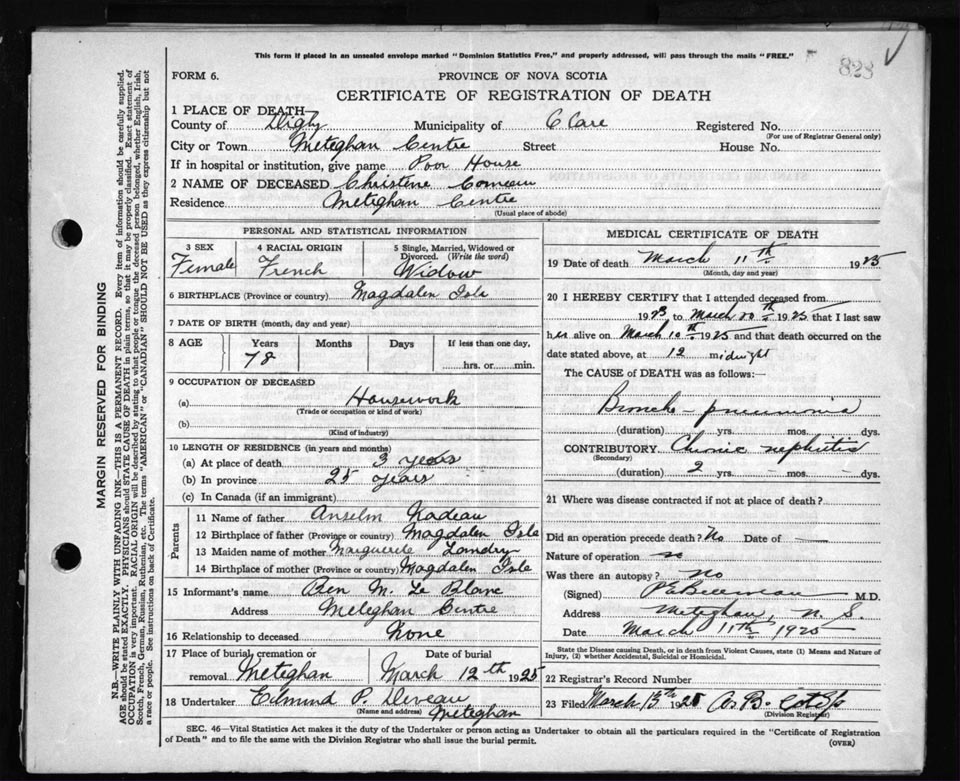 This form if placed in an unsealed envelope marked "Dominion Statistics Free," and properly addressed, will pass through the mails "FREE."
828
FORM 6.
PROVINCE OF NOVA SCOTIA
CERTIFICATE OF REGISTRATION OF DEATH
1 PLACE OF DEATH
County of Digby Municipality of Clare Registered No.
(For use of Registrar General only)
City or Town Meteghan Centre Street House No.
If in hospital or institution, give name Poor House
2 NAME OF DECEASED Christene Comeau
Residence Meteghan Centre
(Usual place of abode)
PERSONAL AND STATISTICAL INFORMATION
3 SEX 4 RACIAL ORIGIN 5 Single, Married, Widowed or Divorced. (Write the word)
Female French Widow
6 BIRTHPLACE (Province or country) Magdalen Isle
7 DATE OF BIRTH (month, day and year)
8 AGE Years Months Days If less than one day,
78 hrs. or min.
9 OCCUPATION OF DECEASED
(a) Housework
(Trade or occupation or kind of work)
(b)
(Kind of industry)
10 LENGTH OF RESIDENCE (in years and months)
(a) At place of death 3 years
(b) In province 25 years
(c) In Canada (if an immigrant)
Parents
11 Name of father Anselm Nadeau
12 Birthplace of father (Province or country) Magdalen Isle
13 Maiden name of mother Marguerite Landry
14 Birthplace of mother (Province or country) Magdalen Isle
15 Informant's name Ben M. Le Blanc
Address Meteghan Centre
16 Relationship to deceased None
17 Place of burial, cremation or removal Meteghan Date of burial March 12th 1925
18 Undertaker Edmund P. Deveau
(Name and address) Meteghan
MEDICAL CERTIFICATE OF DEATH
19 Date of death March 11th 1925
(Month, day and year)
20 I HEREBY CERTIFY that I attended deceased from
1923 to March 10th 1925 that I last saw
her alive on March 10th 1925 and that death occurred on the
date stated above, at 12 midnight
The CAUSE OF DEATH was as follows:—
Broncho-pneumonia
(duration) yrs. mos. dys.
CONTRIBUTORY Chronic nephritis
(Secondary)
(duration) 2 yrs. mos. dys.
21 Where was disease contracted if not at place of death?
Did an operation precede death? No Date of —
Nature of operation no
Was there an autopsy? no
(Signed) M.D.
Address Meteghan, N. S.
Date March 11th 1925
State the Disease causing Death, or in death from Violent Causes, state (1) Means and Nature of
Injury, (2) whether Accidental, Suicidal or Homicidal.
22 Registrar's Record Number
23 Filed March 13th 1925
(Division Registrar)
SEC. 46—Vital Statistics Act makes it the duty of the Undertaker or person acting as Undertaker to obtain all the particulars required in the "Certificate of Registration
of Death" and to file the same with the Division Registrar who shall issue the burial permit.
(OVER)
MARGIN RESERVED FOR BINDING
N.B.—WRITE PLAINLY WITH UNFADING INK—THIS IS A PERMANENT RECORD. Every item of information should be carefully supplied.
AGE should be stated EXACTLY. PHYSICIANS should STATE CAUSE OF DEATH in plain terms, so that it may be properly classified. Exact statement of
OCCUPATION is very important. RACIAL ORIGIN will be described by stating to what people or tongue the deceased person belonged, whether English, Irish,
Scotch, French, German, Russian, Ruthenian, etc. The terms "AMERICAN" or "CANADIAN" SHOULD NOT BE USED as they express citizenship but not
a race or people. See instructions on back of Certificate.